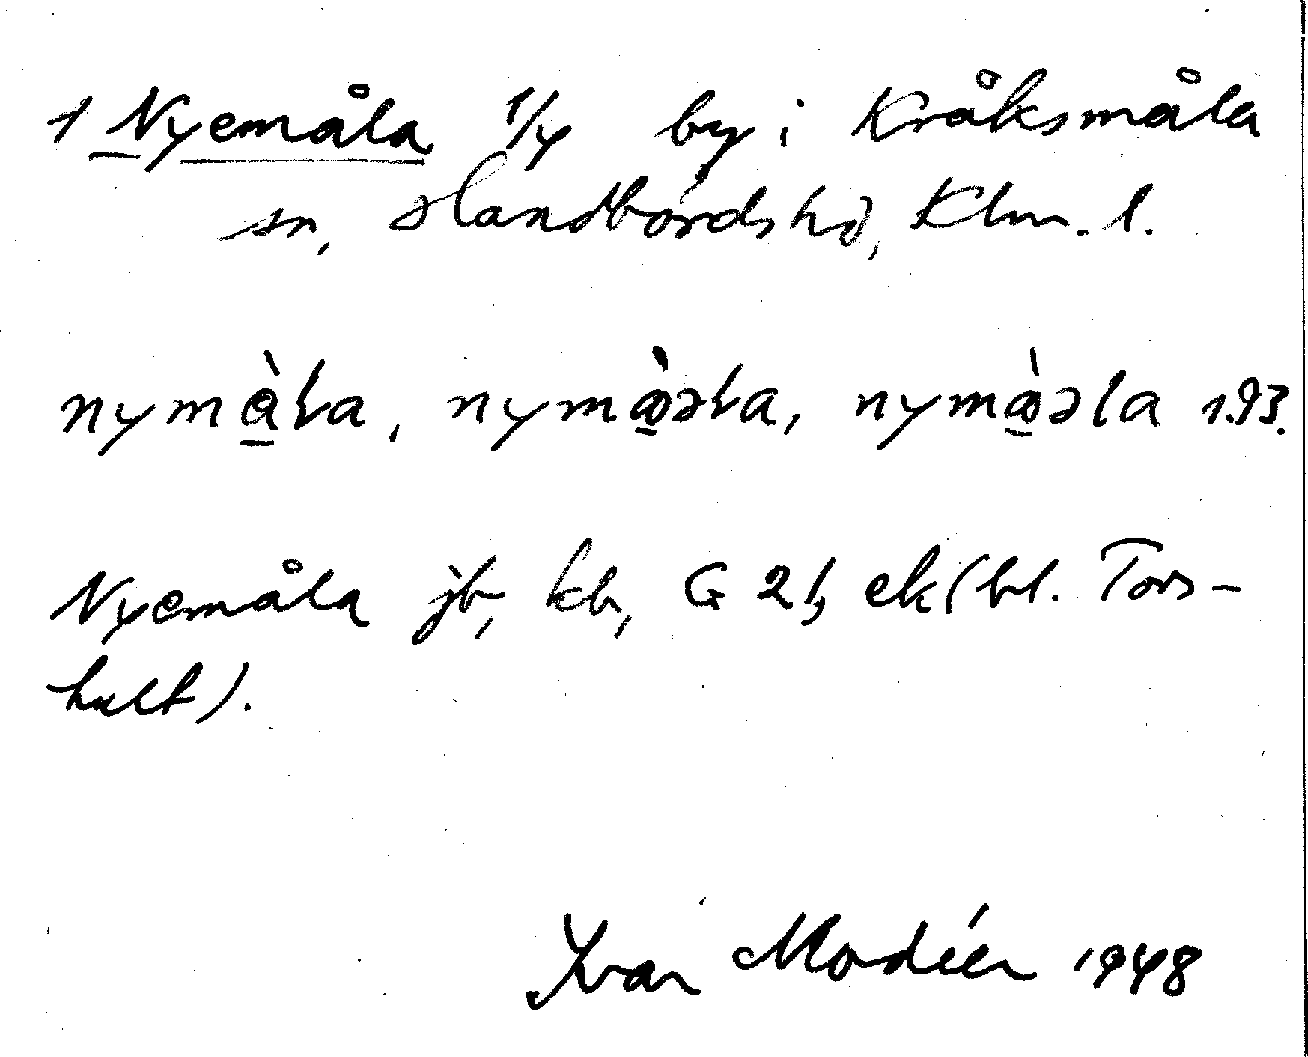 1 Nyemåla 1/4 by i Kråksmåla
sn, Handbörds hd, Klm. l.
nymə̱̀ła, nymò̱əła, nymò̱əla 1.93.
Nyemåla jb, kb, G 21, ek (bl. Tors-
hult).
Ivar Modéer 1948